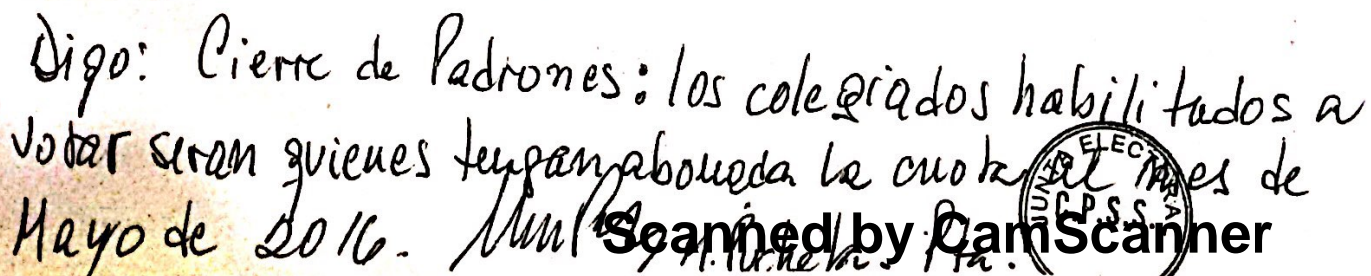 Digo: Cierre de Padrones: los colegiados habilitados a
votar seran quienes tengan abonada la cuota al mes de
Mayo de 2016.
JUNTA ELECTORAL
C.P.S.S.
Scanned by CamScanner